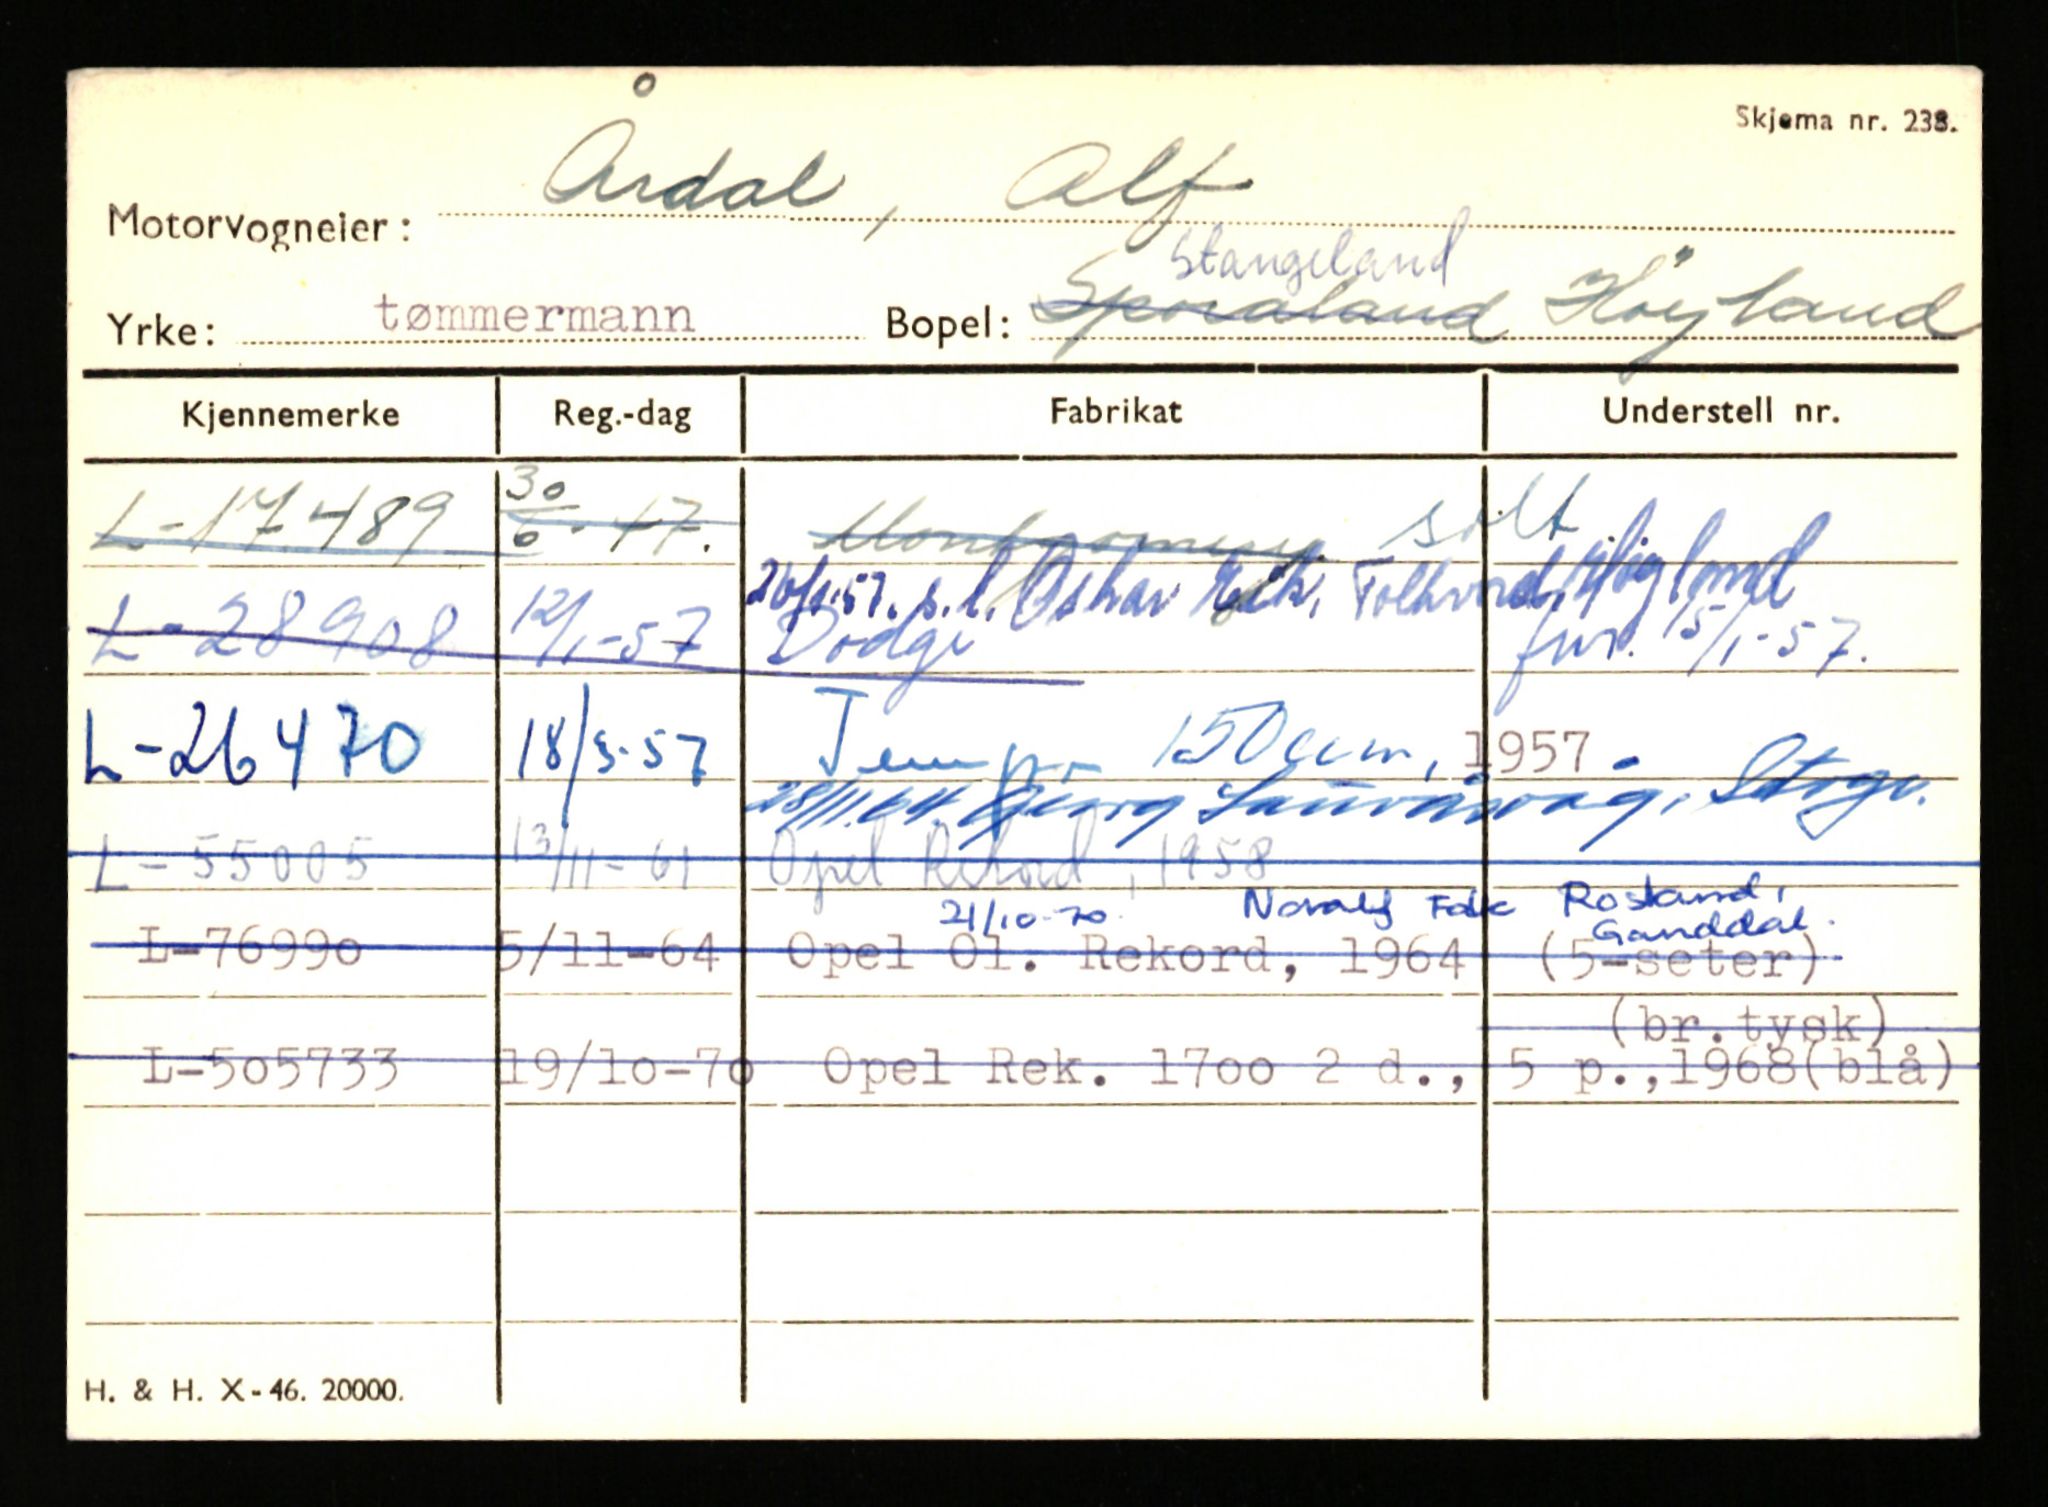 Skjema nr. 238.
Motorvogneier: Årdal, Alf
Stangeland
Yrke: tømmermann Bopel: Høyland
Kjennemerke Reg.-dag Fabrikat Understell nr.
L-17489 30/6-47. Montgomery solt
26/1-57. s.l. Oskar Eik, Folkvord, Høgland
L-28908 12/1-57 Dodge fur. 15/1-57.
L-26470 18/3-57 Tempo 150ccm, 1957.
28/11.64. Georg Stvgr.
L-55005 13/11-61 Opel Rekord, 1958
21/10-70. Noralf Folk Rosland,
Ganddal.
L-76990 5/11-64 Opel Ol. Rekord, 1964 (5-seter)
(br.tysk)
L-505733 19/10-70 Opel Rek. 1700 2 d., 5 p.,1968(blå)
H. & H. X-46. 20000.